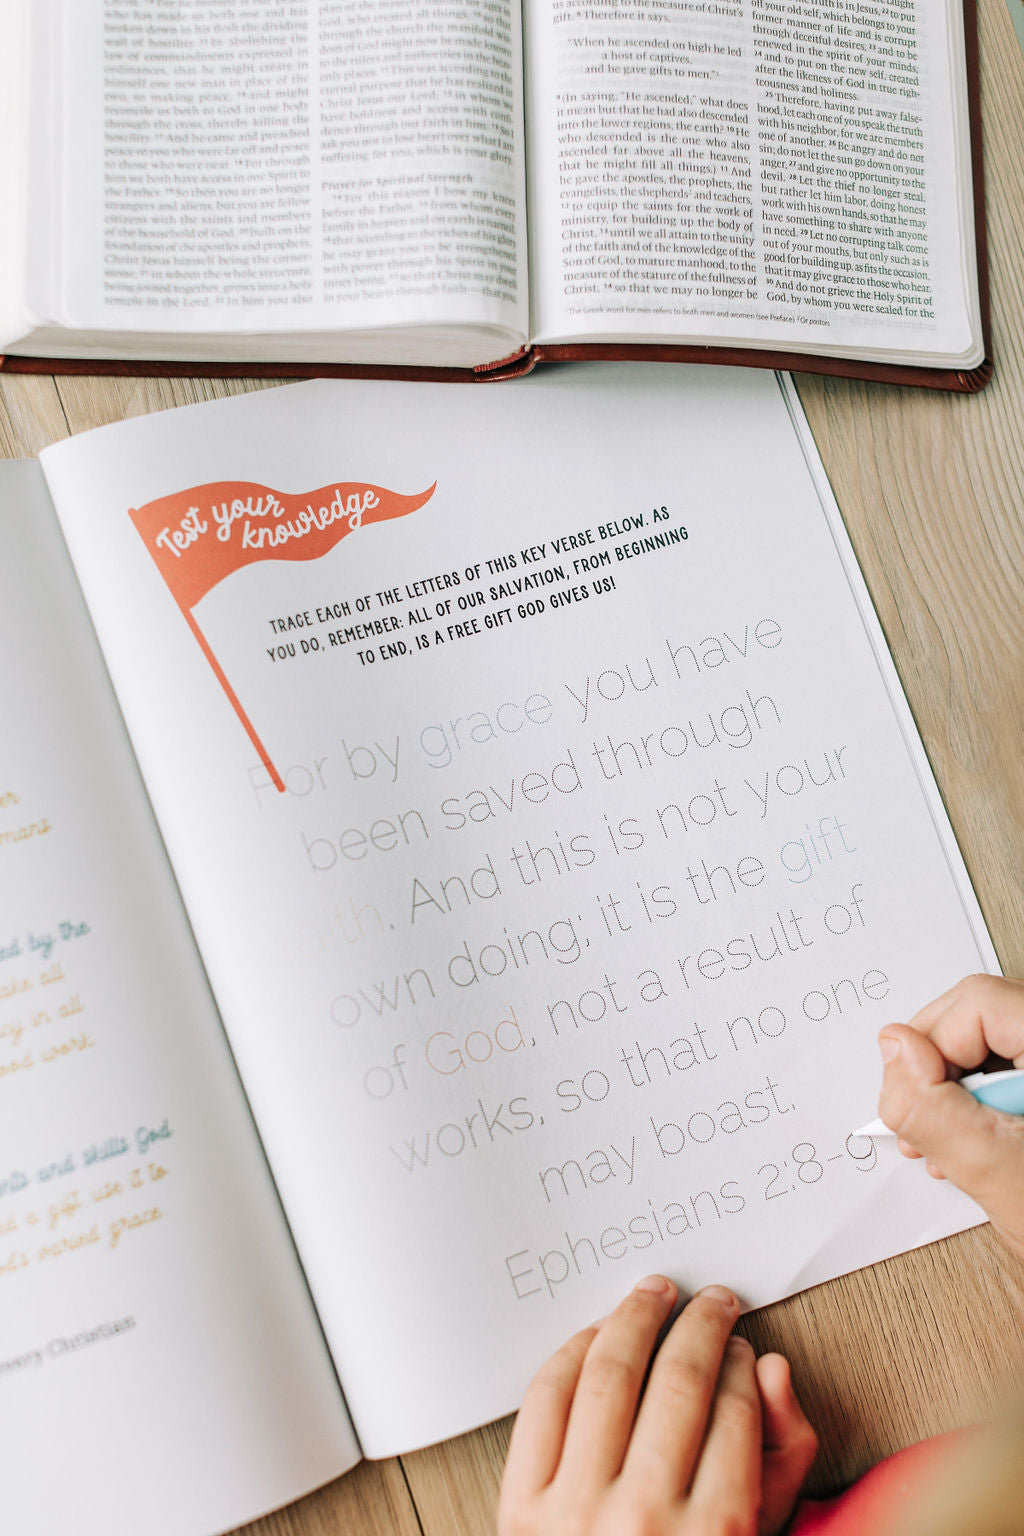 who has made us both one and has
broken down in his flesh the dividing
wall of hostility 15 by abolishing the
law of commandments expressed in
ordinances, that he might create in
himself one new man in place of the
two, so making peace, 16 and might
reconcile us both to God in one body
through the cross, thereby killing the
hostility. 17 And he came and preached
peace to you who were far off and peace
to those who were near. 18 For through
him we both have access in one Spirit to
the Father. 19 So then you are no longer
strangers and aliens, but you are fellow
citizens with the saints and members
of the household of God, 20 built on the
foundation of the apostles and prophets,
Christ Jesus himself being the corner-
stone, 21 in whom the whole structure,
being joined together, grows into a holy
temple in the Lord. 22 In him you also
plan of the mystery hidden for ages in
God, who created all things, 10 so that
through the church the manifold wis-
dom of God might now be made known
to the rulers and authorities in the heav-
enly places. 11 This was according to the
eternal purpose that he has realized in
Christ Jesus our Lord, 12 in whom we
have boldness and access with confi-
dence through our faith in him. 13 So I
ask you not to lose heart over what I am
suffering for you, which is your glory.
Prayer for Spiritual Strength
14 For this reason I bow my knees
before the Father, 15 from whom every
family in heaven and on earth is named,
16 that according to the riches of his glory
he may grant you to be strengthened
with power through his Spirit in your
inner being, 17 so that Christ may dwell
in your hearts through faith—that you,
us according to the measure of Christ's
gift. 8 Therefore it says,
"When he ascended on high he led
a host of captives,
and he gave gifts to men."
9 (In saying, "He ascended," what does
it mean but that he had also descended
into the lower regions, the earth? 10 He
who descended is the one who also
ascended far above all the heavens,
that he might fill all things.) 11 And
he gave the apostles, the prophets, the
evangelists, the shepherds2 and teachers,
12 to equip the saints for the work of
ministry, for building up the body of
Christ, 13 until we all attain to the unity
of the faith and of the knowledge of the
Son of God, to mature manhood, to the
measure of the stature of the fullness of
Christ, 14 so that we may no longer be
truth is in Jesus, 22 to put
off your old self, which belongs to your
former manner of life and is corrupt
through deceitful desires, 23 and to be
renewed in the spirit of your minds,
24 and to put on the new self, created
after the likeness of God in true righ-
teousness and holiness.
25 Therefore, having put away false-
hood, let each one of you speak the truth
with his neighbor, for we are members
one of another. 26 Be angry and do not
sin; do not let the sun go down on your
anger, 27 and give no opportunity to the
devil. 28 Let the thief no longer steal,
but rather let him labor, doing honest
work with his own hands, so that he may
have something to share with anyone
in need. 29 Let no corrupting talk come
out of your mouths, but only such as is
good for building up, as fits the occasion,
that it may give grace to those who hear.
30 And do not grieve the Holy Spirit of
God, by whom you were sealed for the
1 The Greek word for men refers to both men and women (see Preface) 2 Or pastors
Test your
knowledge
TRACE EACH OF THE LETTERS OF THIS KEY VERSE BELOW. AS
YOU DO, REMEMBER: ALL OF OUR SALVATION, FROM BEGINNING
TO END, IS A FREE GIFT GOD GIVES US!
For by grace you have
been saved through
faith. And this is not your
own doing; it is the gift
of God, not a result of
works, so that no one
may boast.
Ephesians 2:8-9
by the
all
in all
good work
and skills God
a gift, use it to
varied grace
every Christian